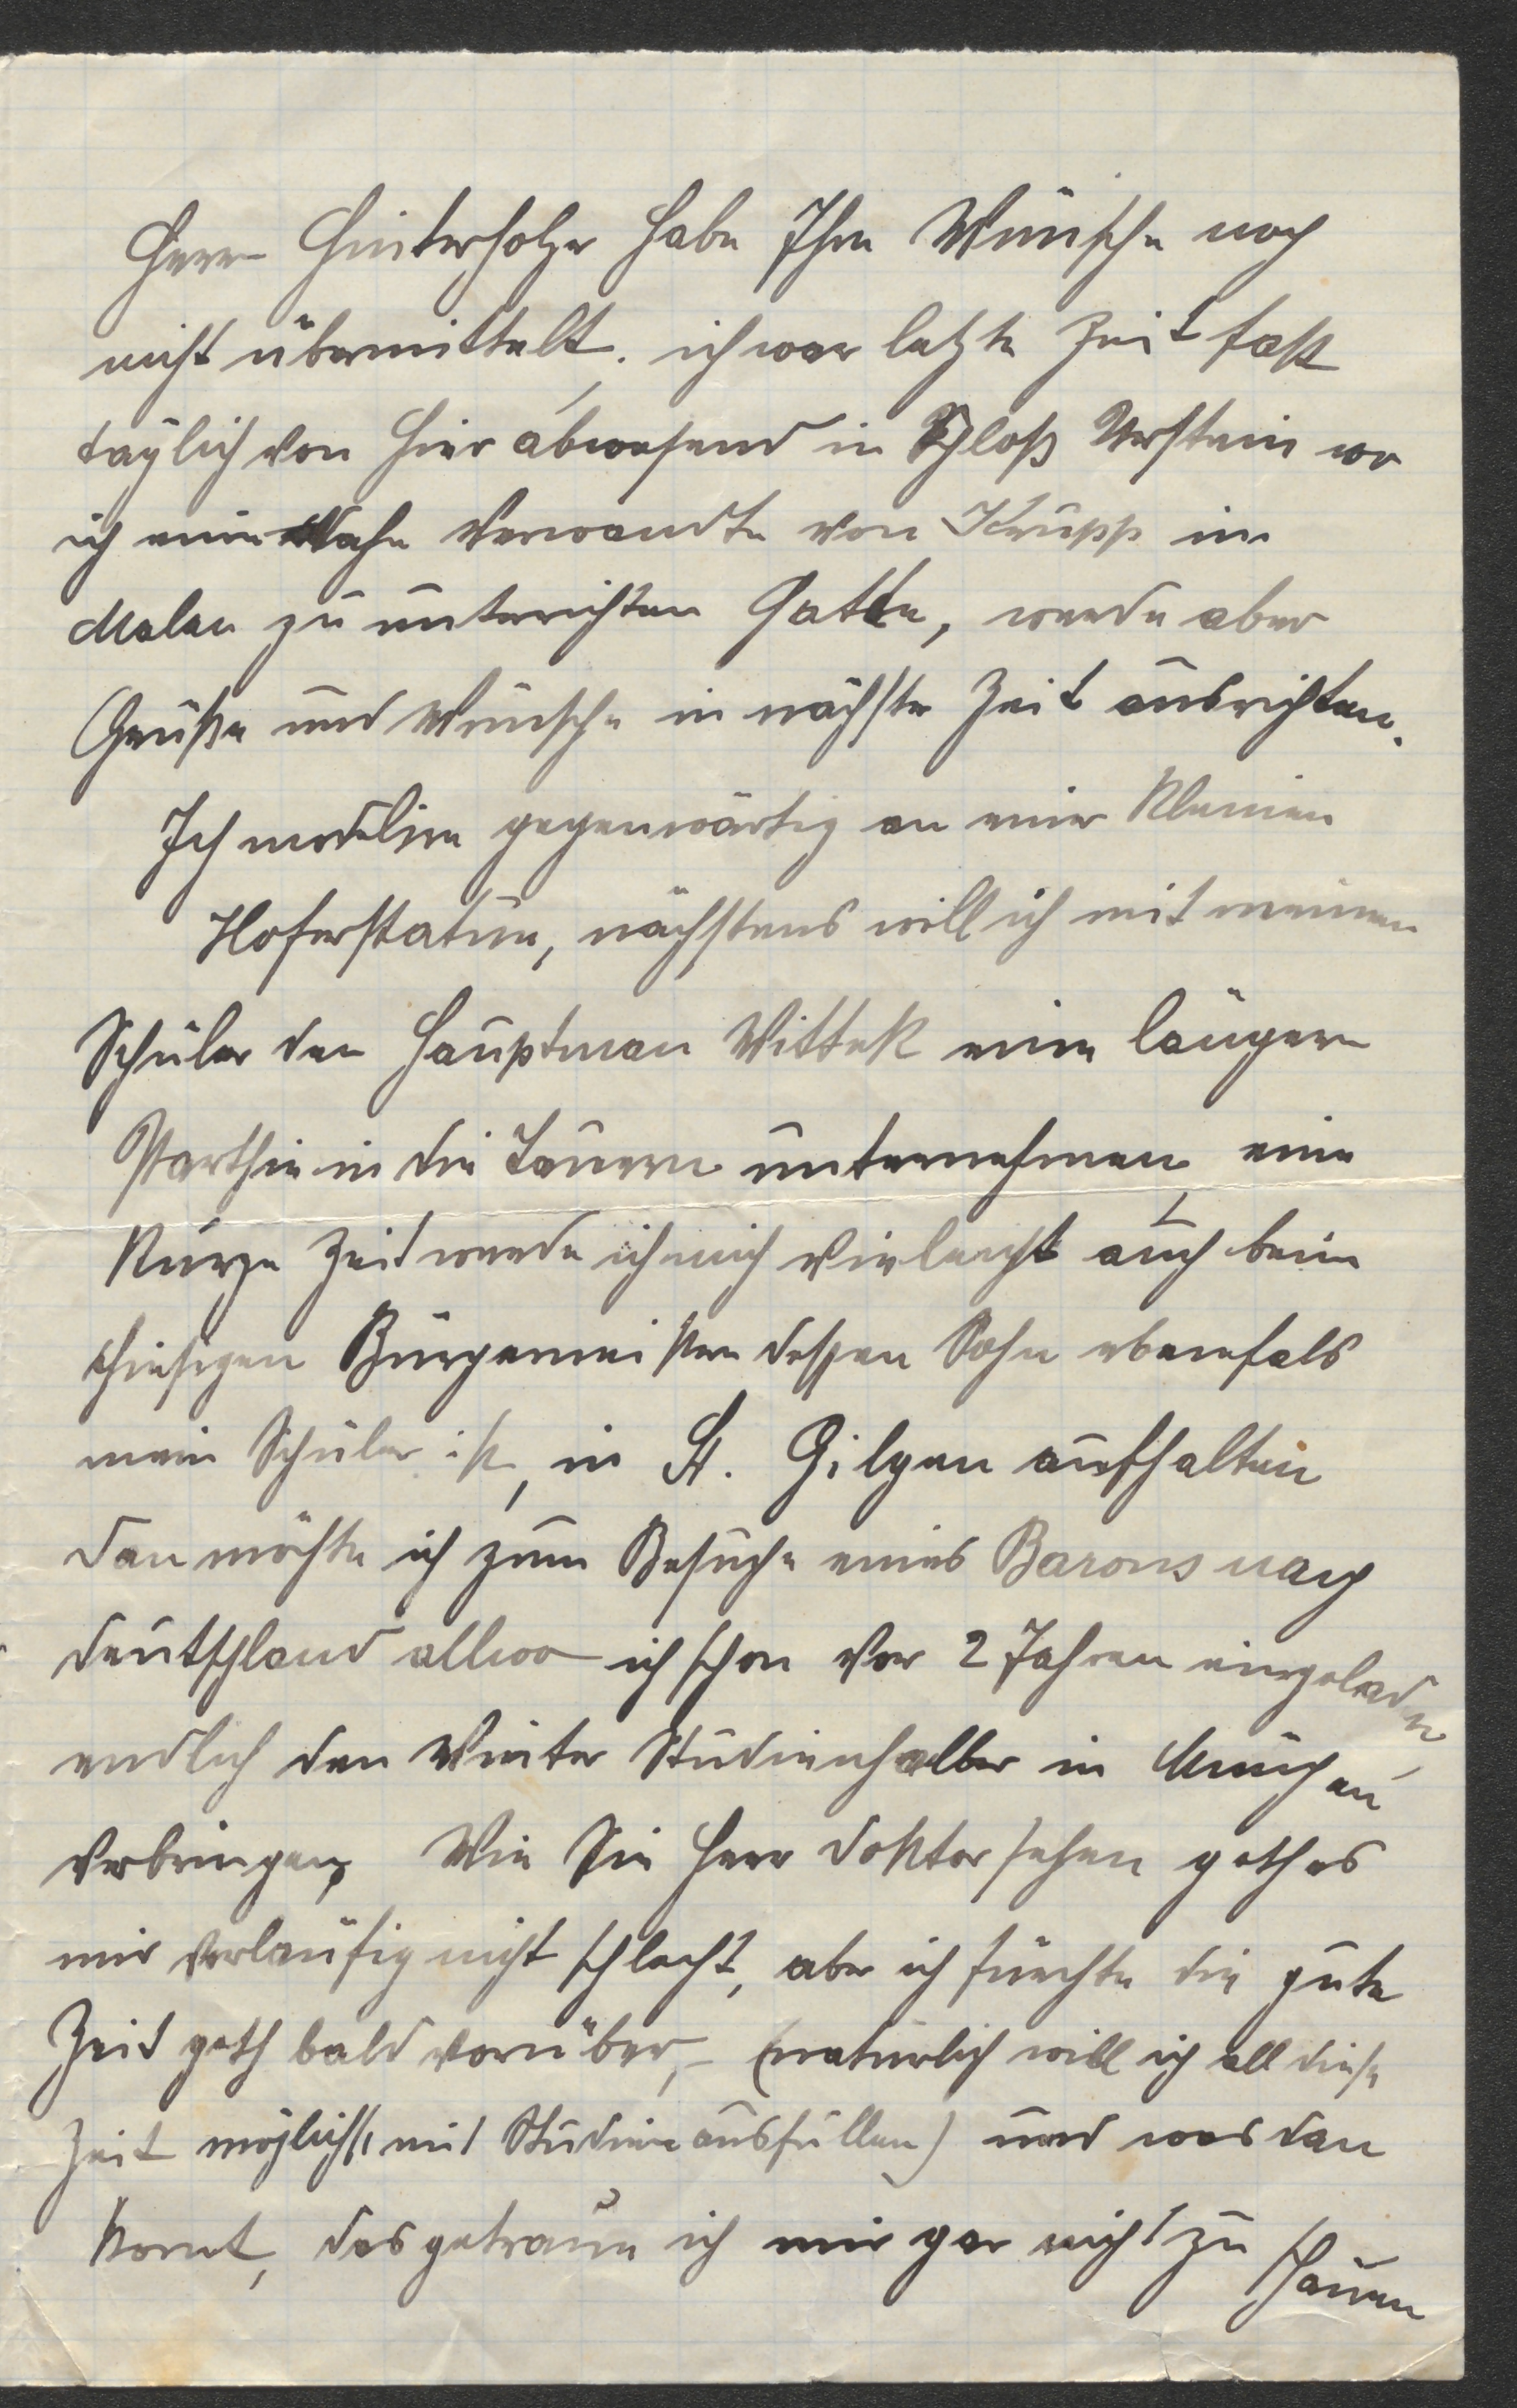 Herrn Hinterholzer habe Ihre Wünsche noch
nicht übermittelt, ich war letzte Zeit fast
täglich von hier abwesend in Schloß Urstein wo
ich eine Nahe Verwandte von Krupp im
Malen zu unterichten hatte, werde aber
Grüße und Wünsche in nächster Zeit ausrichten.
Ich modelire gegenwärtig an einer Kleinen
Hoferstatue, nächstens will ich mit meinem
Schüler den Hauptman Wittek eine längere
Parthie in die Tauern unternehmen, eine
Kurze Zeit werde ich mich vieleicht auch beim
hiesigen Bürgermeister dessen Sohn ebenfals
mein Schüler ist, in St. Gilgen aufhalten
dan möchte ich zum Besuche eines Barons nach
Deutschland allwo ich schon vor 2 Jahren eingeladen,
endlich den Winter Studienhalber in München
verbringen, Wie Sie Herr Doktor sehen geth es
mir vorläufig nicht schlecht, aber ich fürchte die gute
Zeit geth bald vorüber, – (natürlich will ich all diese
Zeit möglichst mit Studien ausfüllen) und was dan
Komt, das getraue ich mir gar nicht zu schauen